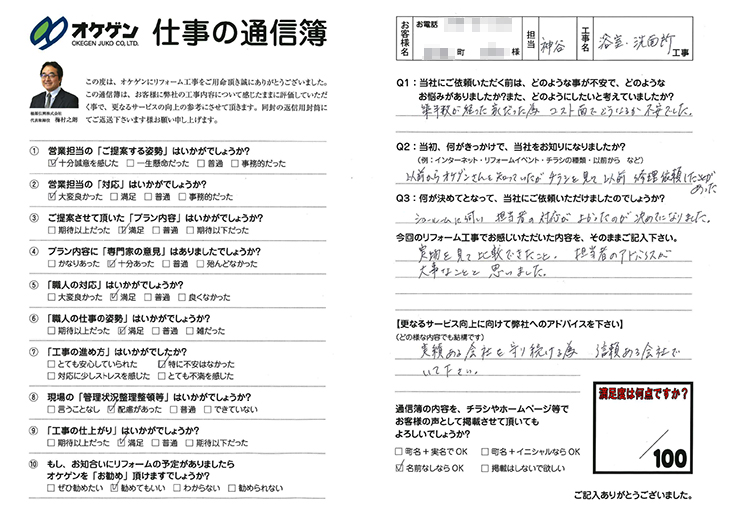 オケゲン
OKEGEN JUKO CO, LTD.
仕事の通信簿
この度は、オケゲンにリフォーム工事をご用命頂き誠にありがとうございました。
この通信簿は、お客様に弊社の工事内容について感じたままに評価していただ
く事で、更なるサービスの向上の参考にさせて頂きます。同封の返信用封筒に
てご返送下さいます様お願い申し上げます。
代表取締役
① 営業担当の「ご提案する姿勢」はいかがでしょうか？
☑十分誠意を感じた □一生懸命だった □普通 □事務的だった
② 営業担当の「対応」はいかがでしょうか？
☑大変良かった □満足 □普通 □事務的だった
③ ご提案させて頂いた「プラン内容」はいかがでしょうか？
□期待以上だった ☑満足 □普通 □期待以下だった
④ プラン内容に「専門家の意見」はありましたでしょうか？
□かなりあった ☑十分あった □普通 □殆んどなかった
⑤ 「職人の対応」はいかがでしょうか？
□大変良かった ☑満足 □普通 □良くなかった
⑥ 「職人の仕事の姿勢」はいかがでしょうか？
□期待以上だった ☑満足 □普通 □雑だった
⑦ 「工事の進め方」はいかがでしたか？
□とても安心していられた ☑特に不安はなかった
□対応に少しストレスを感じた □とても不満を感じた
⑧ 現場の「管理状況整理整頓等」はいかがでしょうか？
□言うことなし ☑配慮があった □普通 □できていない
⑨ 「工事の仕上がり」はいかがでしょうか？
□期待以上だった ☑満足 □普通 □期待以下だった
⑩ もし、お知合いにリフォームの予定がありましたら
オケゲンを「お勧め」頂けますでしょうか？
□ぜひ勧めたい ☑勧めてもいい □わからない □勧められない
お客様名 お電話 町 様 担当 神谷 工事名 浴室・洗面所 工事
Q1：当社にご依頼いただく前は、どのような事が不安で、どのような
お悩みがありましたか?また、どのようにしたいと考えていましたか？
築年数が経った家だった為 コスト面でどうなるか不安でした。
Q2：当初、何がきっかけで、当社をお知りになりましたか？
（例：インターネット・リフォームイベント・チラシの種類・以前から など）
以前からオケゲンさんを知っていたが チラシを見て以前 修理依頼したことがあった
Q3：何が決めてとなって、当社にご依頼いただけましたのでしょうか？
ショールームに伺い 担当者の対応がよかったのが決めてになりました。
今回のリフォーム工事でお感じいただいた内容を、そのままご記入下さい。
実物を見て比較できたこと。 担当者のアドバイスが
大事なことと思いました。
【更なるサービス向上に向けて弊社へのアドバイスを下さい】
（どの様な内容でも結構です）
実績ある会社を守り続ける為 信頼ある会社で
いて下さい。
通信簿の内容を、チラシやホームページ等で
お客様の声として掲載させて頂いても
よろしいでしょうか？
□町名＋実名でOK □町名＋イニシャルならOK
☑名前なしならOK □掲載はしないで欲しい
満足度は何点ですか？
／100
ご記入ありがとうございました。